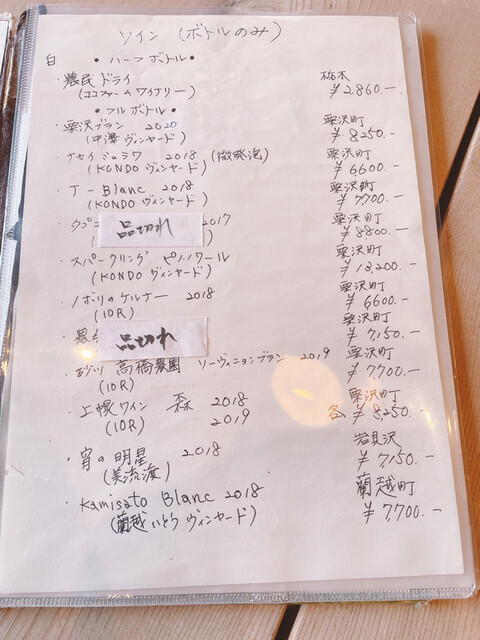 ワイン (ボトルのみ)
白 • ハーフボトル •
・農民ドライ 栃木
(ココファームワイナリー) ¥2,860.-
• フルボトル •
・栗沢ブラン 2020 栗沢町
(中澤ヴィンヤード) ¥8,250.-
・ナカイシュラワ 2018 (微発泡) 栗沢町
(KONDOヴィンヤード) ¥6600.-
・T-Blanc 2018 栗沢町
(KONDOヴィンヤード) ¥7,700.-
・タプ 品切れ 2017 栗沢町
) ¥8800.-
・スパークリング ピノノワール 栗沢町
(KONDO ヴィンヤード) ¥13,200.-
・ノボリのケルナー 2018 栗沢町
(10R) ¥6600.-
・農 品切れ 栗沢町
¥7,150.-
・砂川 高橋農園 ソーヴィニョンブラン 2019 栗沢町
(10R) ¥7700.-
・上幌ワイン 森 2018 栗沢町
(10R) 2019 各 ¥8,250.-
・宵の明星 2018 岩見沢
(美流渡) ¥7,150.-
・Kamisato Blanc 2018 蘭越町
(蘭越いとうヴィンヤード) ¥7,700.-